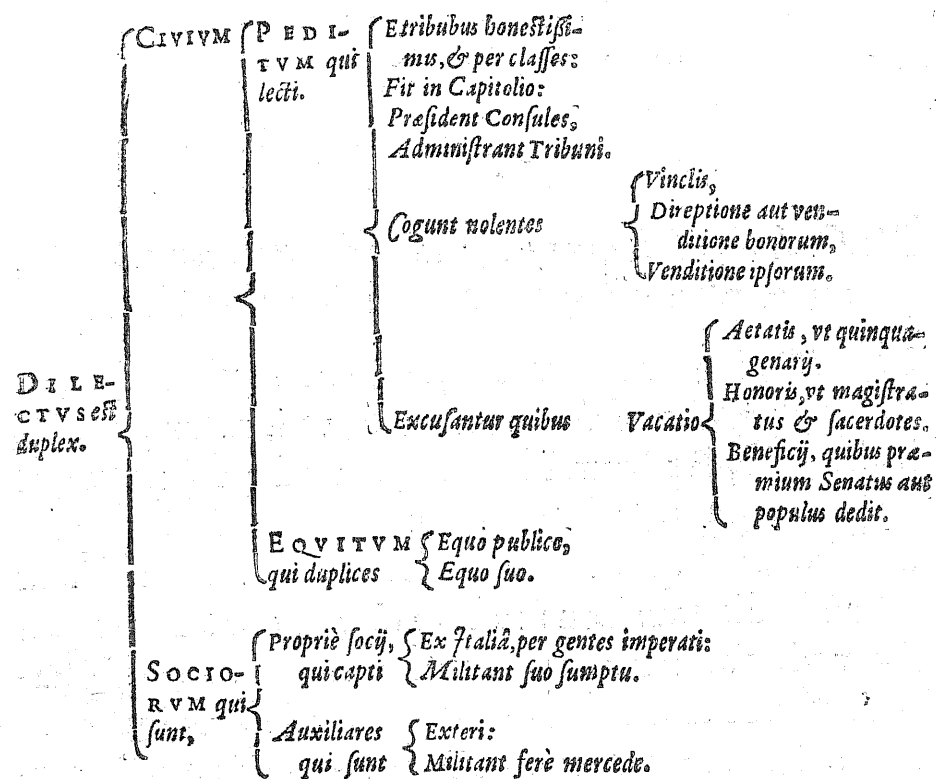 DILE-
CTVS est
duplex.
CIVIVM
PEDI-
TVM qui
lecti.
Etribubus honestißi-
mis, & per classes:
Fit in Capitolio:
Præsident Consules,
Administrant Tribuni.
Cogunt nolentes
Vinclis,
Direptione aut ven-
ditione bonorum,
Venditione ipsorum.
Excusantur quibus
Vacatio
Aetatis, vt quinqua-
genarij.
Honoris, vt magistra-
tus & sacerdotes.
Beneficij, quibus præ-
mium Senatus aut
populus dedit.
EQVITVM
qui duplices
Equo publico,
Equo suo.
SOCIO-
RVM qui
sunt,
Propriè socij,
qui capti
Ex Italiâ, per gentes imperati:
Militant suo sumptu.
Auxiliares
qui sunt
Exteri:
Militant ferè mercede.